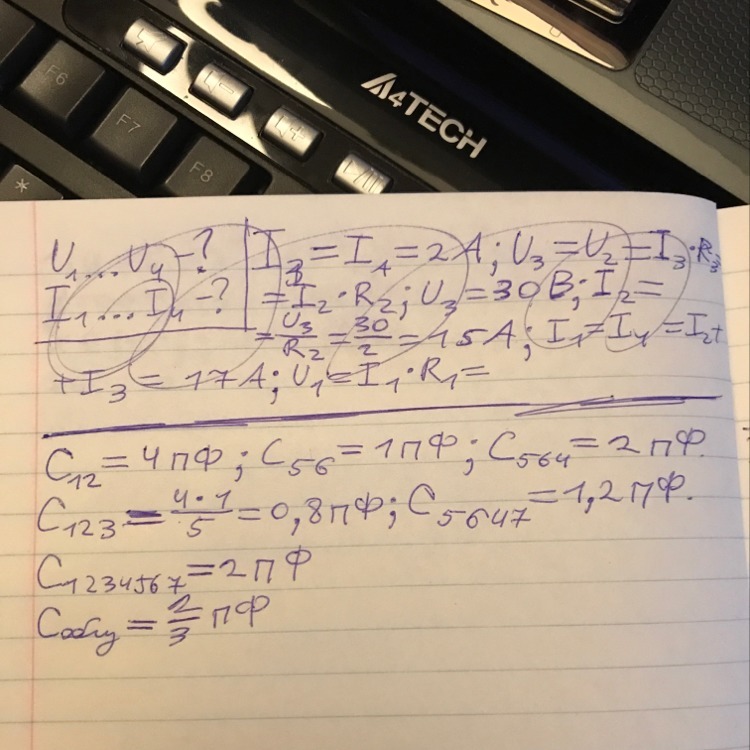 F6
F7
F8
*
A4TECH
U₁...U₄-? I₃=I_A=2A; U₃=U₂=I₃·R₃
I₁...I₄-? =I₂·R₂; U₃=30В; I₂=
=U₃/R₂=30/2=15A; I₁=I₄=I₂+
+I₃=17A; U₁=I₁·R₁=
C₁₂=4пФ; C₅₆=1пФ; C₅₆₄=2пФ.
C₁₂₃=4·1/5=0,8пФ; C₅₆₄₇=1,2пФ.
C₁₂₃₄₅₆₇=2пФ
Cобщ=2/3пФ